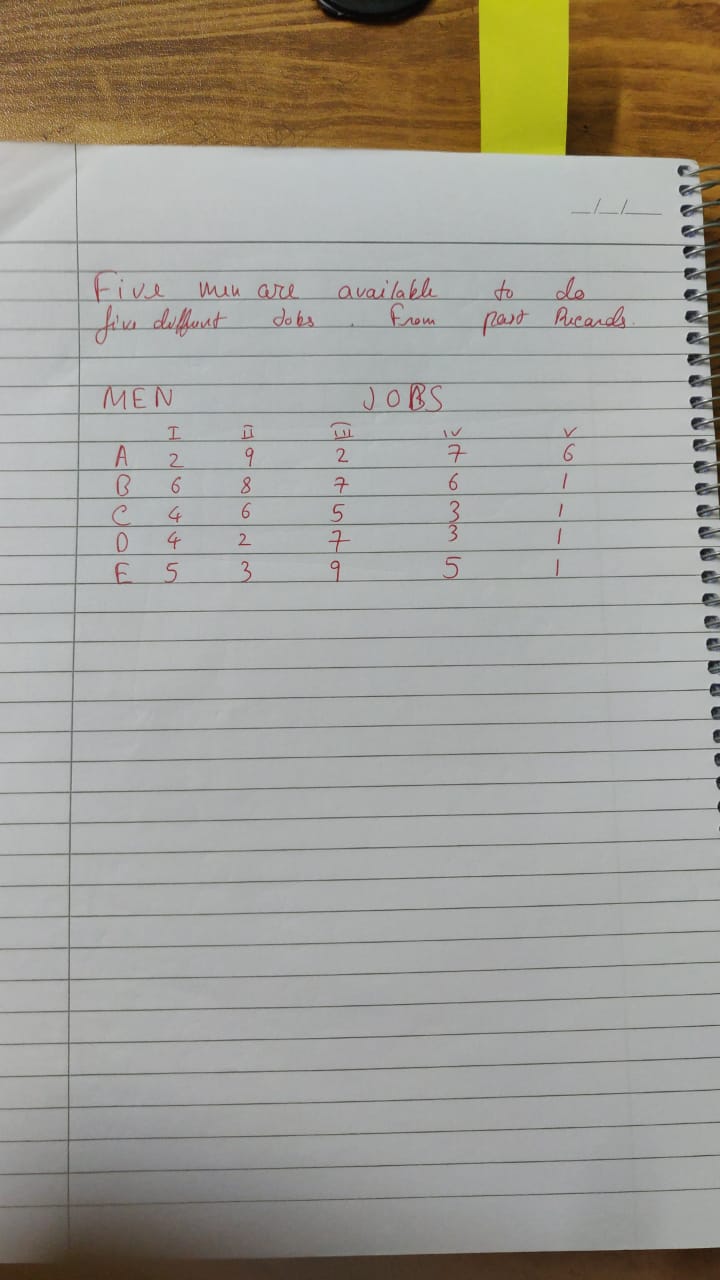 _/_/_
Five men are available to do
five different Jobs. From past Records.
MEN JOBS
I II III IV V
A 2 9 2 7 6
B 6 8 7 6 1
C 4 6 5 3 1
D 4 2 7 3 1
E 5 3 9 5 1